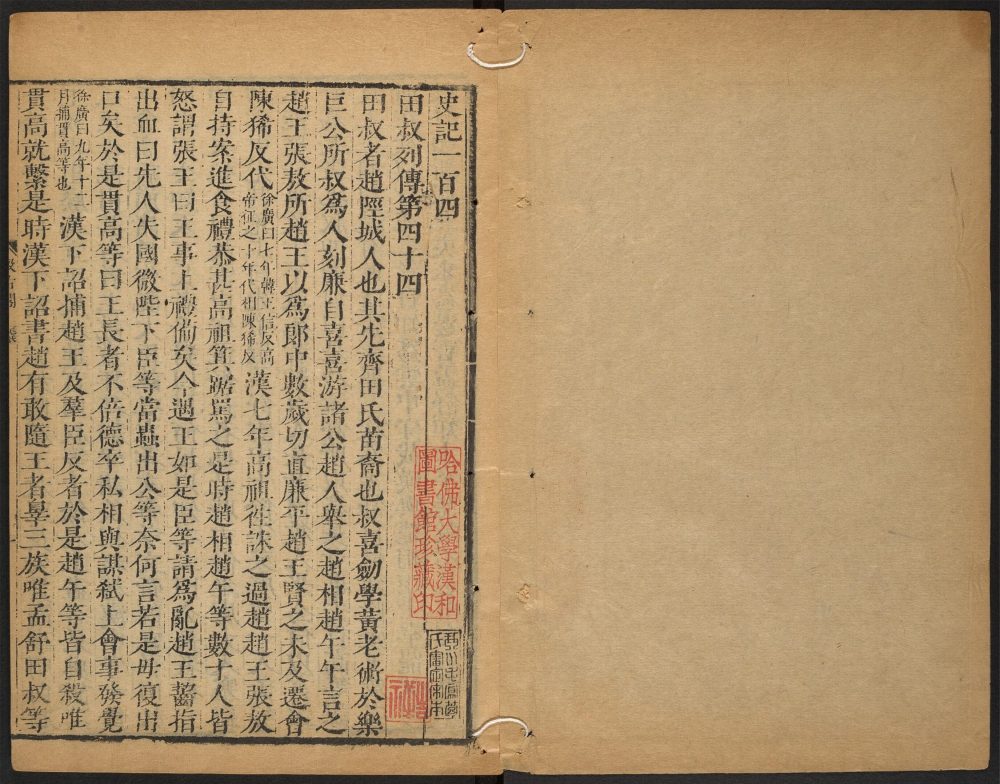 史記一百四
田叔列傳第四十四
田叔者趙陘城人也其先齊田氏苗裔也叔喜劒學黃老術於樂
巨公所叔爲人刻廉自喜喜游諸公趙人舉之趙相趙午午言之
趙王張敖所趙王以爲郎中數歲切直廉平趙王賢之未及遷會
陳狶反代
徐廣曰七年韓王信反高
帝征之十年代相陳狶反
漢七年高祖徃誅之過趙趙王張敖
自持案進食禮恭甚高祖箕踞罵之是時趙相趙午等數十人皆
怒謂張王曰王事上禮備矣今遇王如是臣等請爲亂趙王齧指
出血曰先人失國微陛下臣等當蟲出公等奈何言若是毋復出
口矣於是貫高等曰王長者不倍德卒私相與謀弑上會事發覺
徐廣曰九年十二
月捕貫高等也
漢下詔捕趙王及羣臣反者於是趙午等皆自殺唯
貫高就繫是時漢下詔書趙有敢隨王者辠三族唯孟舒田叔等
哈佛大學漢和
圖書館珍藏印